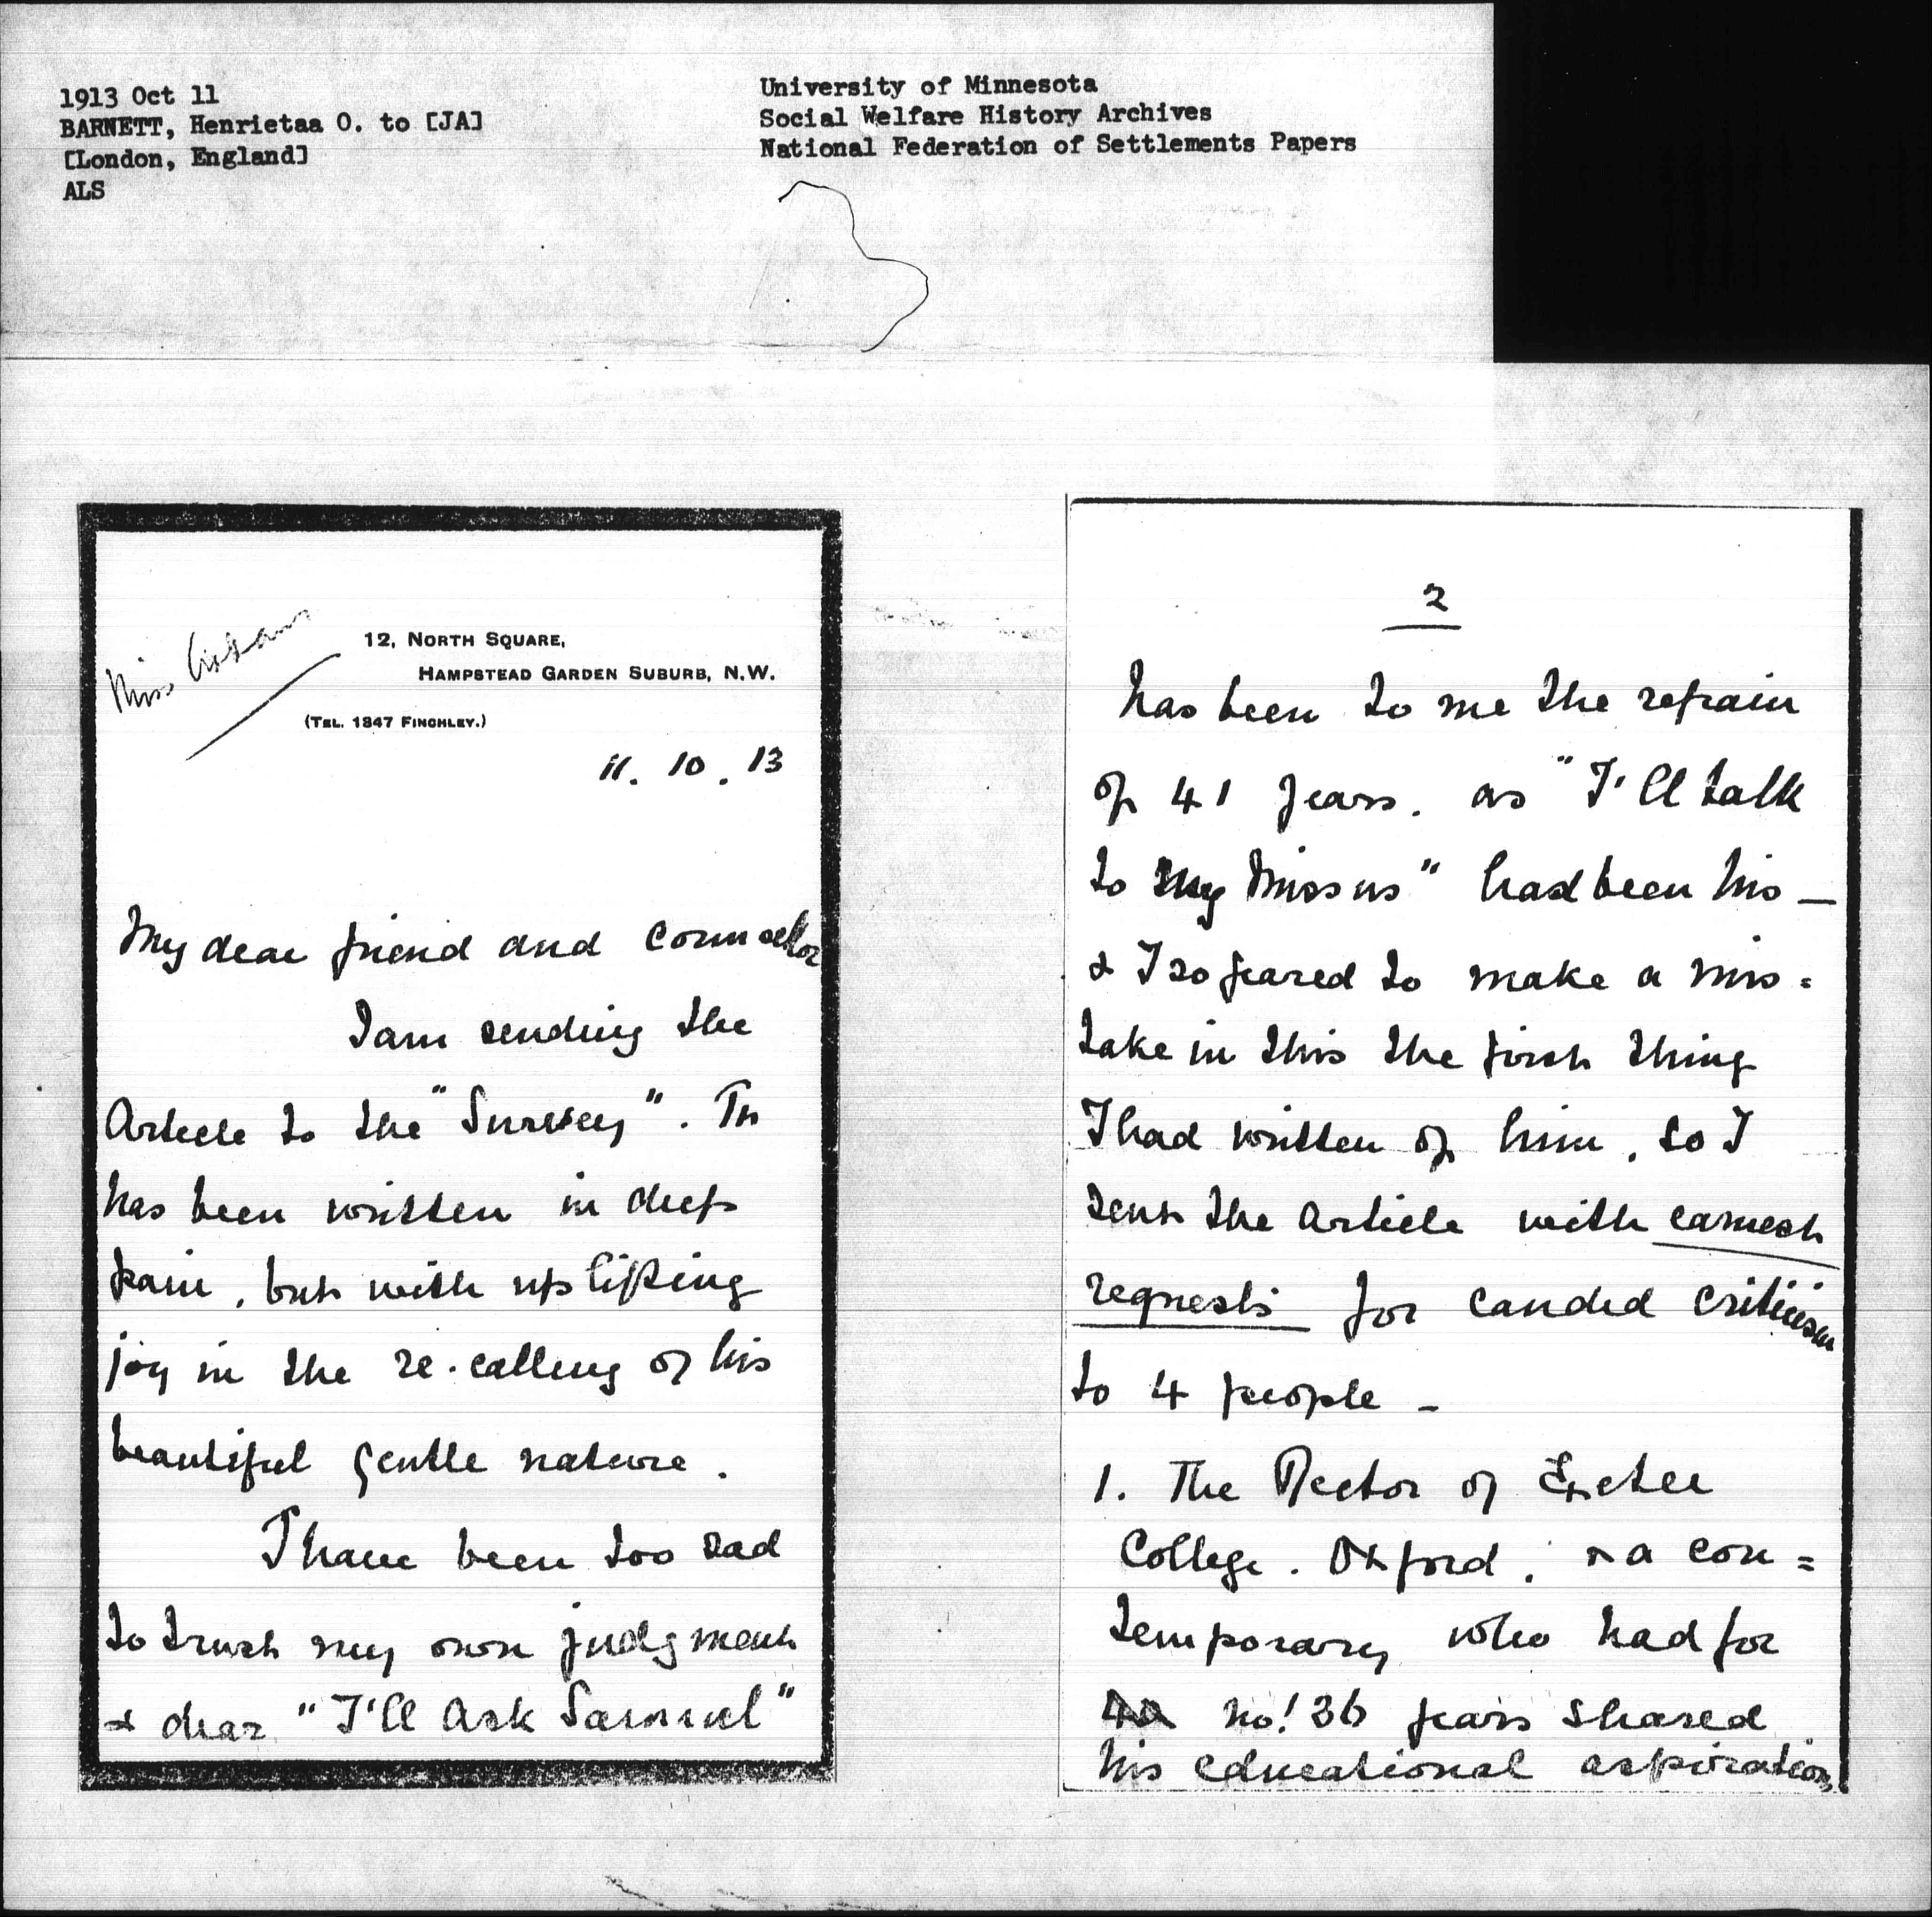 1913 Oct 11
BARNETT, Henrietaa O. to [JA]
[London, England]
ALS
University of Minnesota
Social Welfare History Archives
National Federation of Settlements Papers
Miss
12, NORTH SQUARE,
HAMPSTEAD GARDEN SUBURB, N.W.
(TEL. 1847 FINCHLEY.)
11. 10. 13
My dear friend and Counsellor
I am sending the
Article to the "Survey". It
has been written in deep
pain, but with uplifting
joy in the re-calling of his
beautiful gentle nature.
I have been too sad
to trust my own judgment
& dear "I'll ask Samuel"
2
has been to me the refrain
of 41 years. as "I'll talk
to my Missus" had been his —
& I so feared to make a mis=
take in this the first thing
I had written of him, so I
sent the Article with earnest
requests for candid criticism
to 4 people -
1. The Rector of Exeter
College. Oxford. a con=
temporary who had for
no! 36 years shared
his educational aspirations